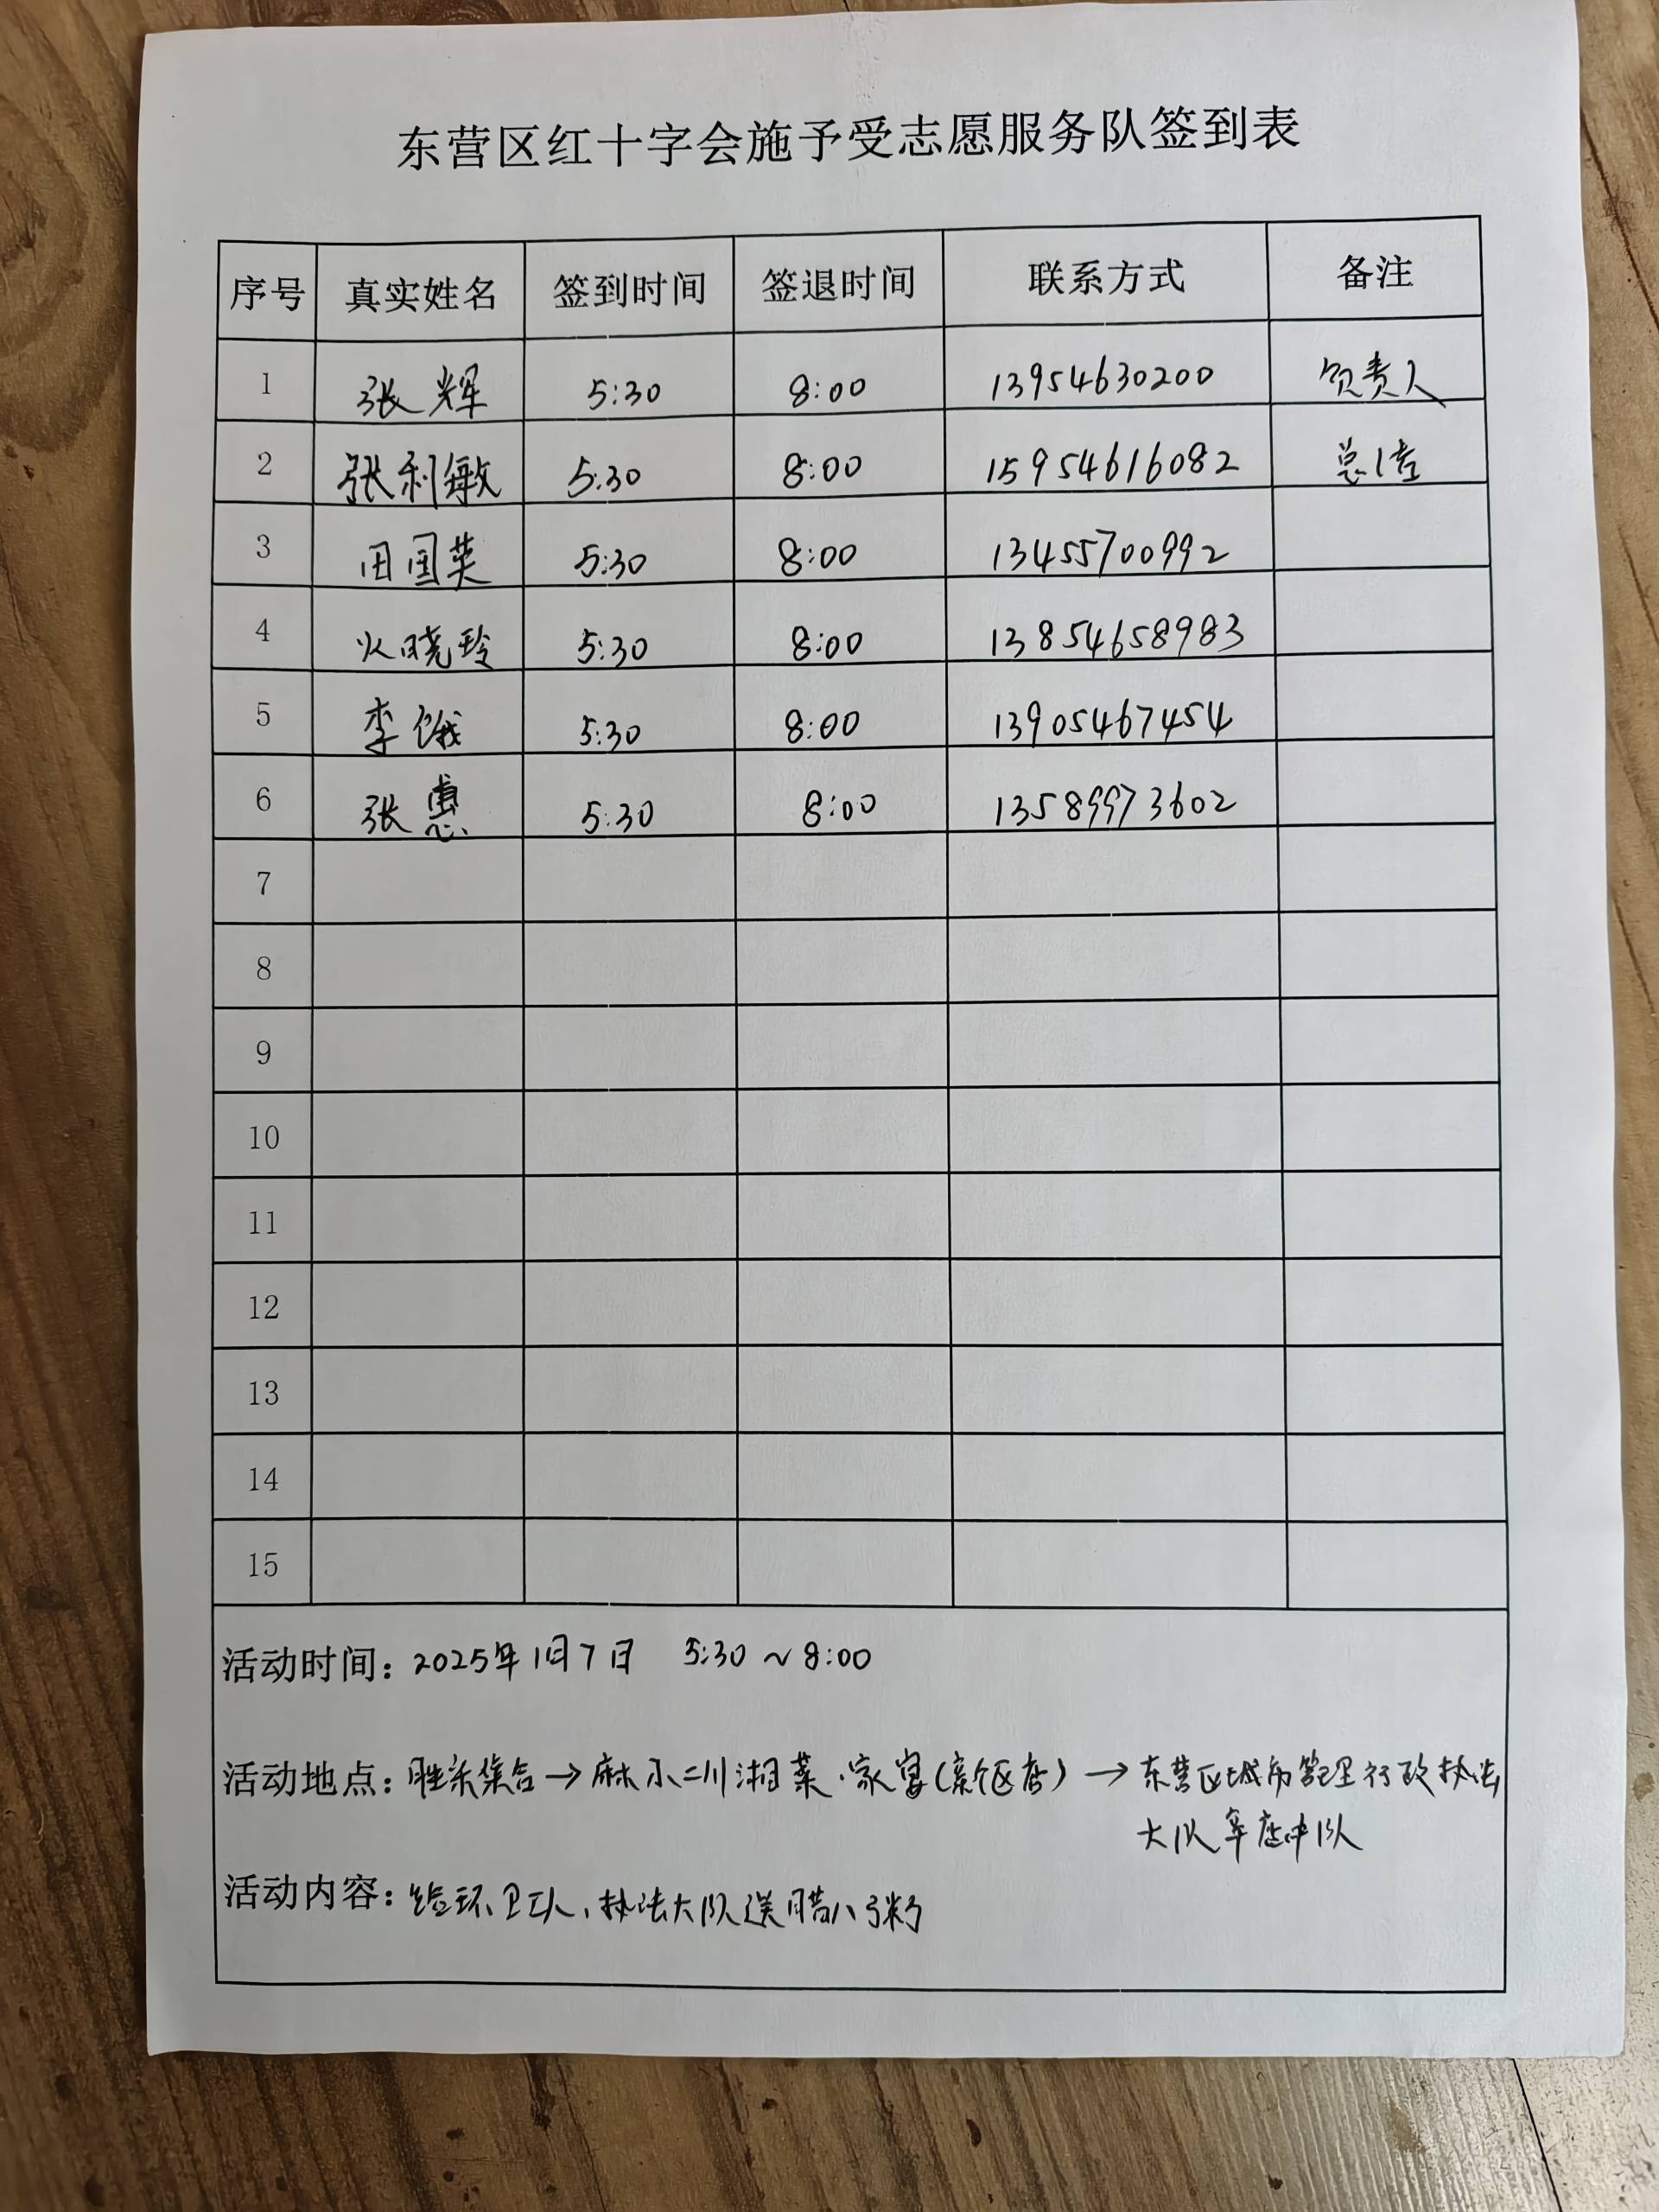 东营区红十字会施予受志愿服务队签到表
序号 真实姓名 签到时间 签退时间 联系方式 备注
1 张辉 5:30 8:00 13954630200 负责人
2 张利敏 5:30 8:00 15954616082
3 田国英 5:30 8:00 13455700992
4 火晓玲 5:30 8:00 13854658983
5 李 5:30 8:00 13905467454
6 张惠 5:30 8:00 13589973602
7
8
9
10
11
12
13
14
15
活动时间：2025年1月7日 5:30~8:00
活动地点：胜东集合→麻小二川湘菜·家宴(新区店)→东营区城市管理行政执法
大队辛店中队
活动内容：给环卫工人、执法大队送腊八粥